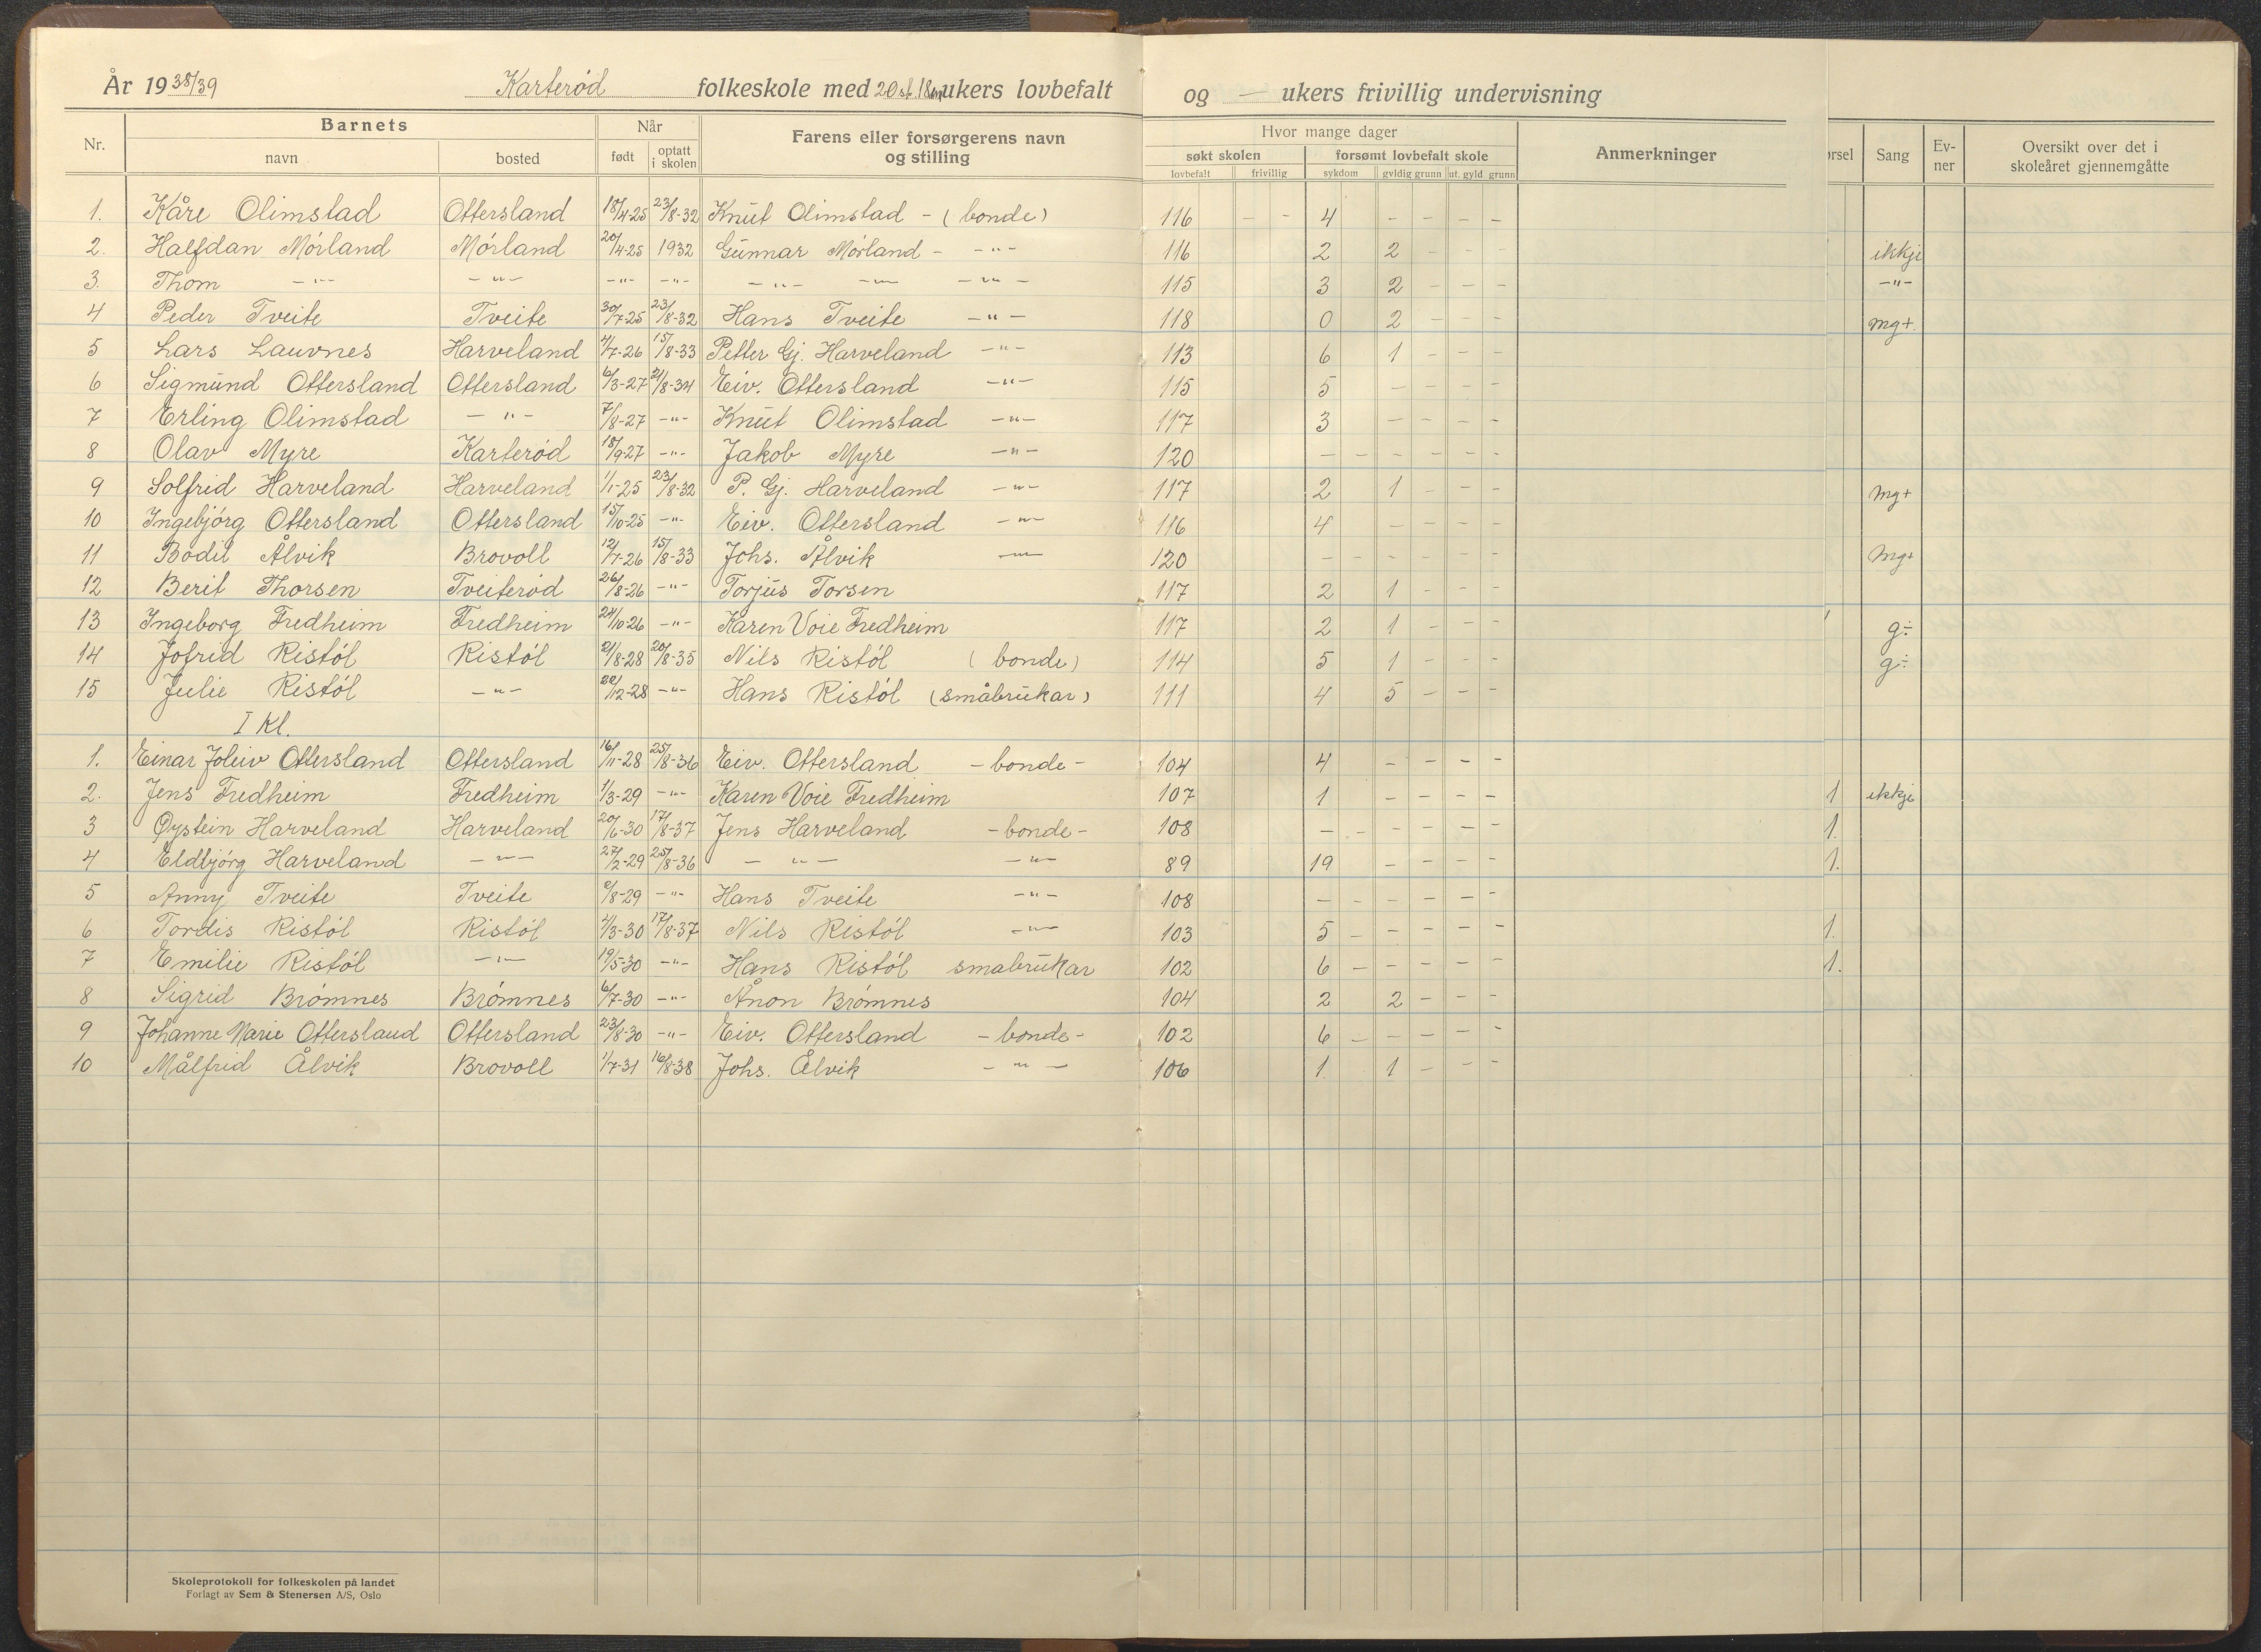 År 1938/39 Karterød folkeskole med 20 st. 18 ukers lovbefalt og — ukers frivillig undervisning
Nr. Barnets navn bosted Når født optatt i skolen Farens eller forsørgerens navn og stilling Hvor mange dager søkt skolen lovbefalt frivillig forsømt lovbefalt skole sykdom gyldig grunn ut. gyld grunn Anmerkninger ørsel Sang Ev-ner Oversikt over det i skoleåret gjennemgåtte
1. Kåre Olimstad Ottersland 18/4-25 23/8-32 Knut Olimstad - (bonde) 116 - - 4 - - - -
2. Halfdan Mórland Mórland 20/4-25 1932 Gunnar Mórland - -"- 116 2 2 - - - ikkje
3. Thom -"- -"- -"- -"- -"- -"- -"- 115 3 2 - - - -"-
4 Peder Tveite Tveite 30/7-25 23/8-32 Hans Tveite -"- 118 0 2 - - - mg+.
5 Lars Lauvnes Harveland 4/7-26 15/8-33 Petter Gj. Harveland -"- 113 6 1 - - -
6 Sigmund Ottersland Ottersland 6/3-27 21/8-34 Eiv. Ottersland -"- 115 5 - - - -
7 Erling Olimstad -"- 7/8-27 -"- Knut Olimstad -"- 117 3 - - - -
8 Olav Myre Karterød 18/9-27 -"- Jakob Myre -"- 120 - - - - - -
9 Solfrid Harveland Harveland 1/1-25 23/8-32 P. Gj. Harveland -"- 117 2 1 - - - mg+
10 Ingebjórg Ottersland Ottersland 15/10-25 -"- Eiv. Ottersland -"- 116 4 - - - -
11 Bodil Ålvik Brovoll 12/7-26 15/8-33 Johs. Ålvik -"- 120 - - - - - - Mg+
12 Berit Thorsen Tveiterød 26/8-26 -"- Torjus Torsen 117 2 1 - - -
13 Ingeborg Fredheim Fredheim 24/10-26 -"- Karen Voie Fredheim 117 2 1 - - - g÷
14 Jofrid Ristól Ristól 21/8-28 20/8-35 Nils Ristól (bonde) 114 5 1 - - - g÷
15 Julie Ristól -"- 22/12-28 -"- Hans Ristól (småbrukar) 111 4 5 - - -
I Kl.
1. Einar Joleiv Ottersland Ottersland 16/11-28 25/8-36 Eiv. Ottersland - bonde - 104 4 - - - -
2. Jens Fredheim Fredheim 1/3-29 -"- Karen Voie Fredheim 107 1 - - - - 1 ikkje
3 Øystein Harveland Harveland 20/6-30 17/8-37 Jens Harveland - bonde - 108 - - - - - - 1.
4 Eldbjórg Harveland -"- 27/2-29 25/8-36 -"- -"- 89 19 - - - - 1.
5 Anny Tveite Tveite 9/8-29 -"- Hans Tveite -"- 108 - - - - - -
6 Tordis Ristól Ristól 2/3-30 17/8-37 Nils Ristól -"- 103 5 - - - - - 1.
7 Emilie Ristól -"- 19/5-30 -"- Hans Ristól småbrukar 102 6 - - - - - 1.
8 Sigrid Brómnes Brómnes 6/7-30 -"- Ånon Brómnes 104 2 2 - - -
9 Johanne Marie Ottersland Ottersland 23/8-30 -"- Eiv. Ottersland - bonde - 102 6 - - - - -
10 Målfrid Ålvik Brovoll 1/7-31 16/8-38 Johs. Ålvik -"- 106 1 1 - - -
Skoleprotokoll for folkeskolen på landet
Forlagt av Sem & Stenersen A/S, Oslo